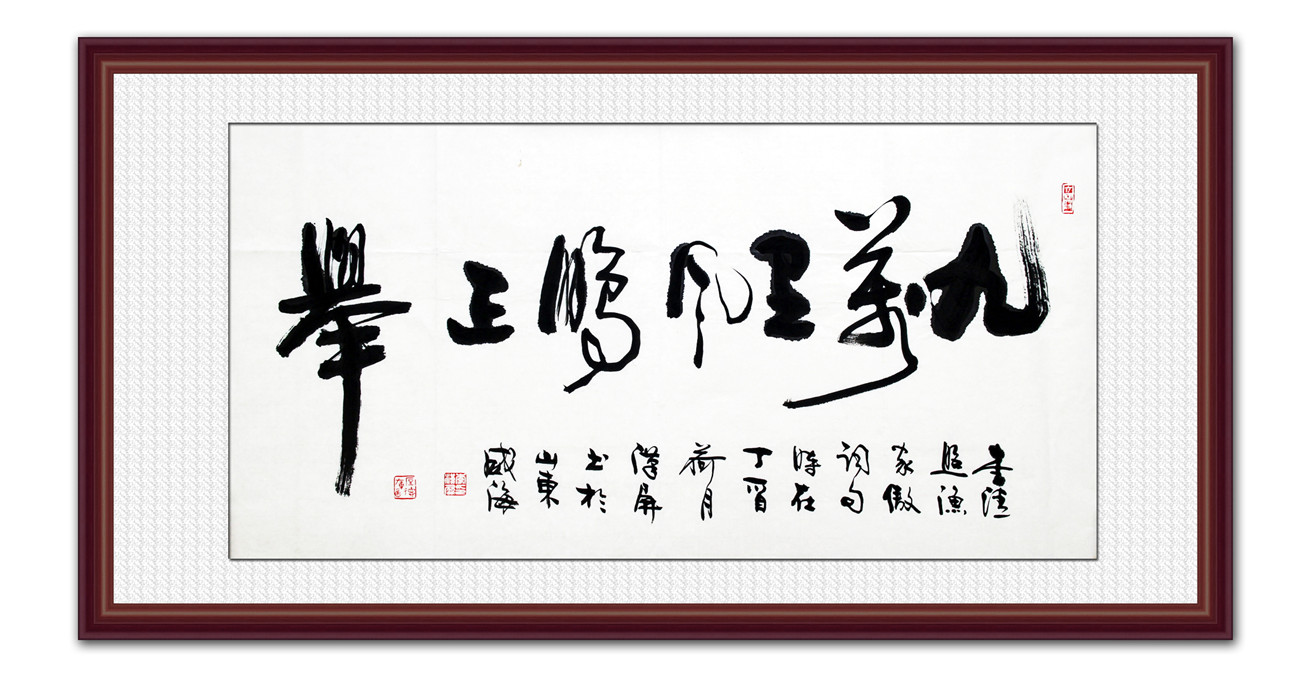 九萬里風鵬正舉
李清
照漁
家傲
詞句
時在
丁酉
荷月
漢屏
书於
山東
威海